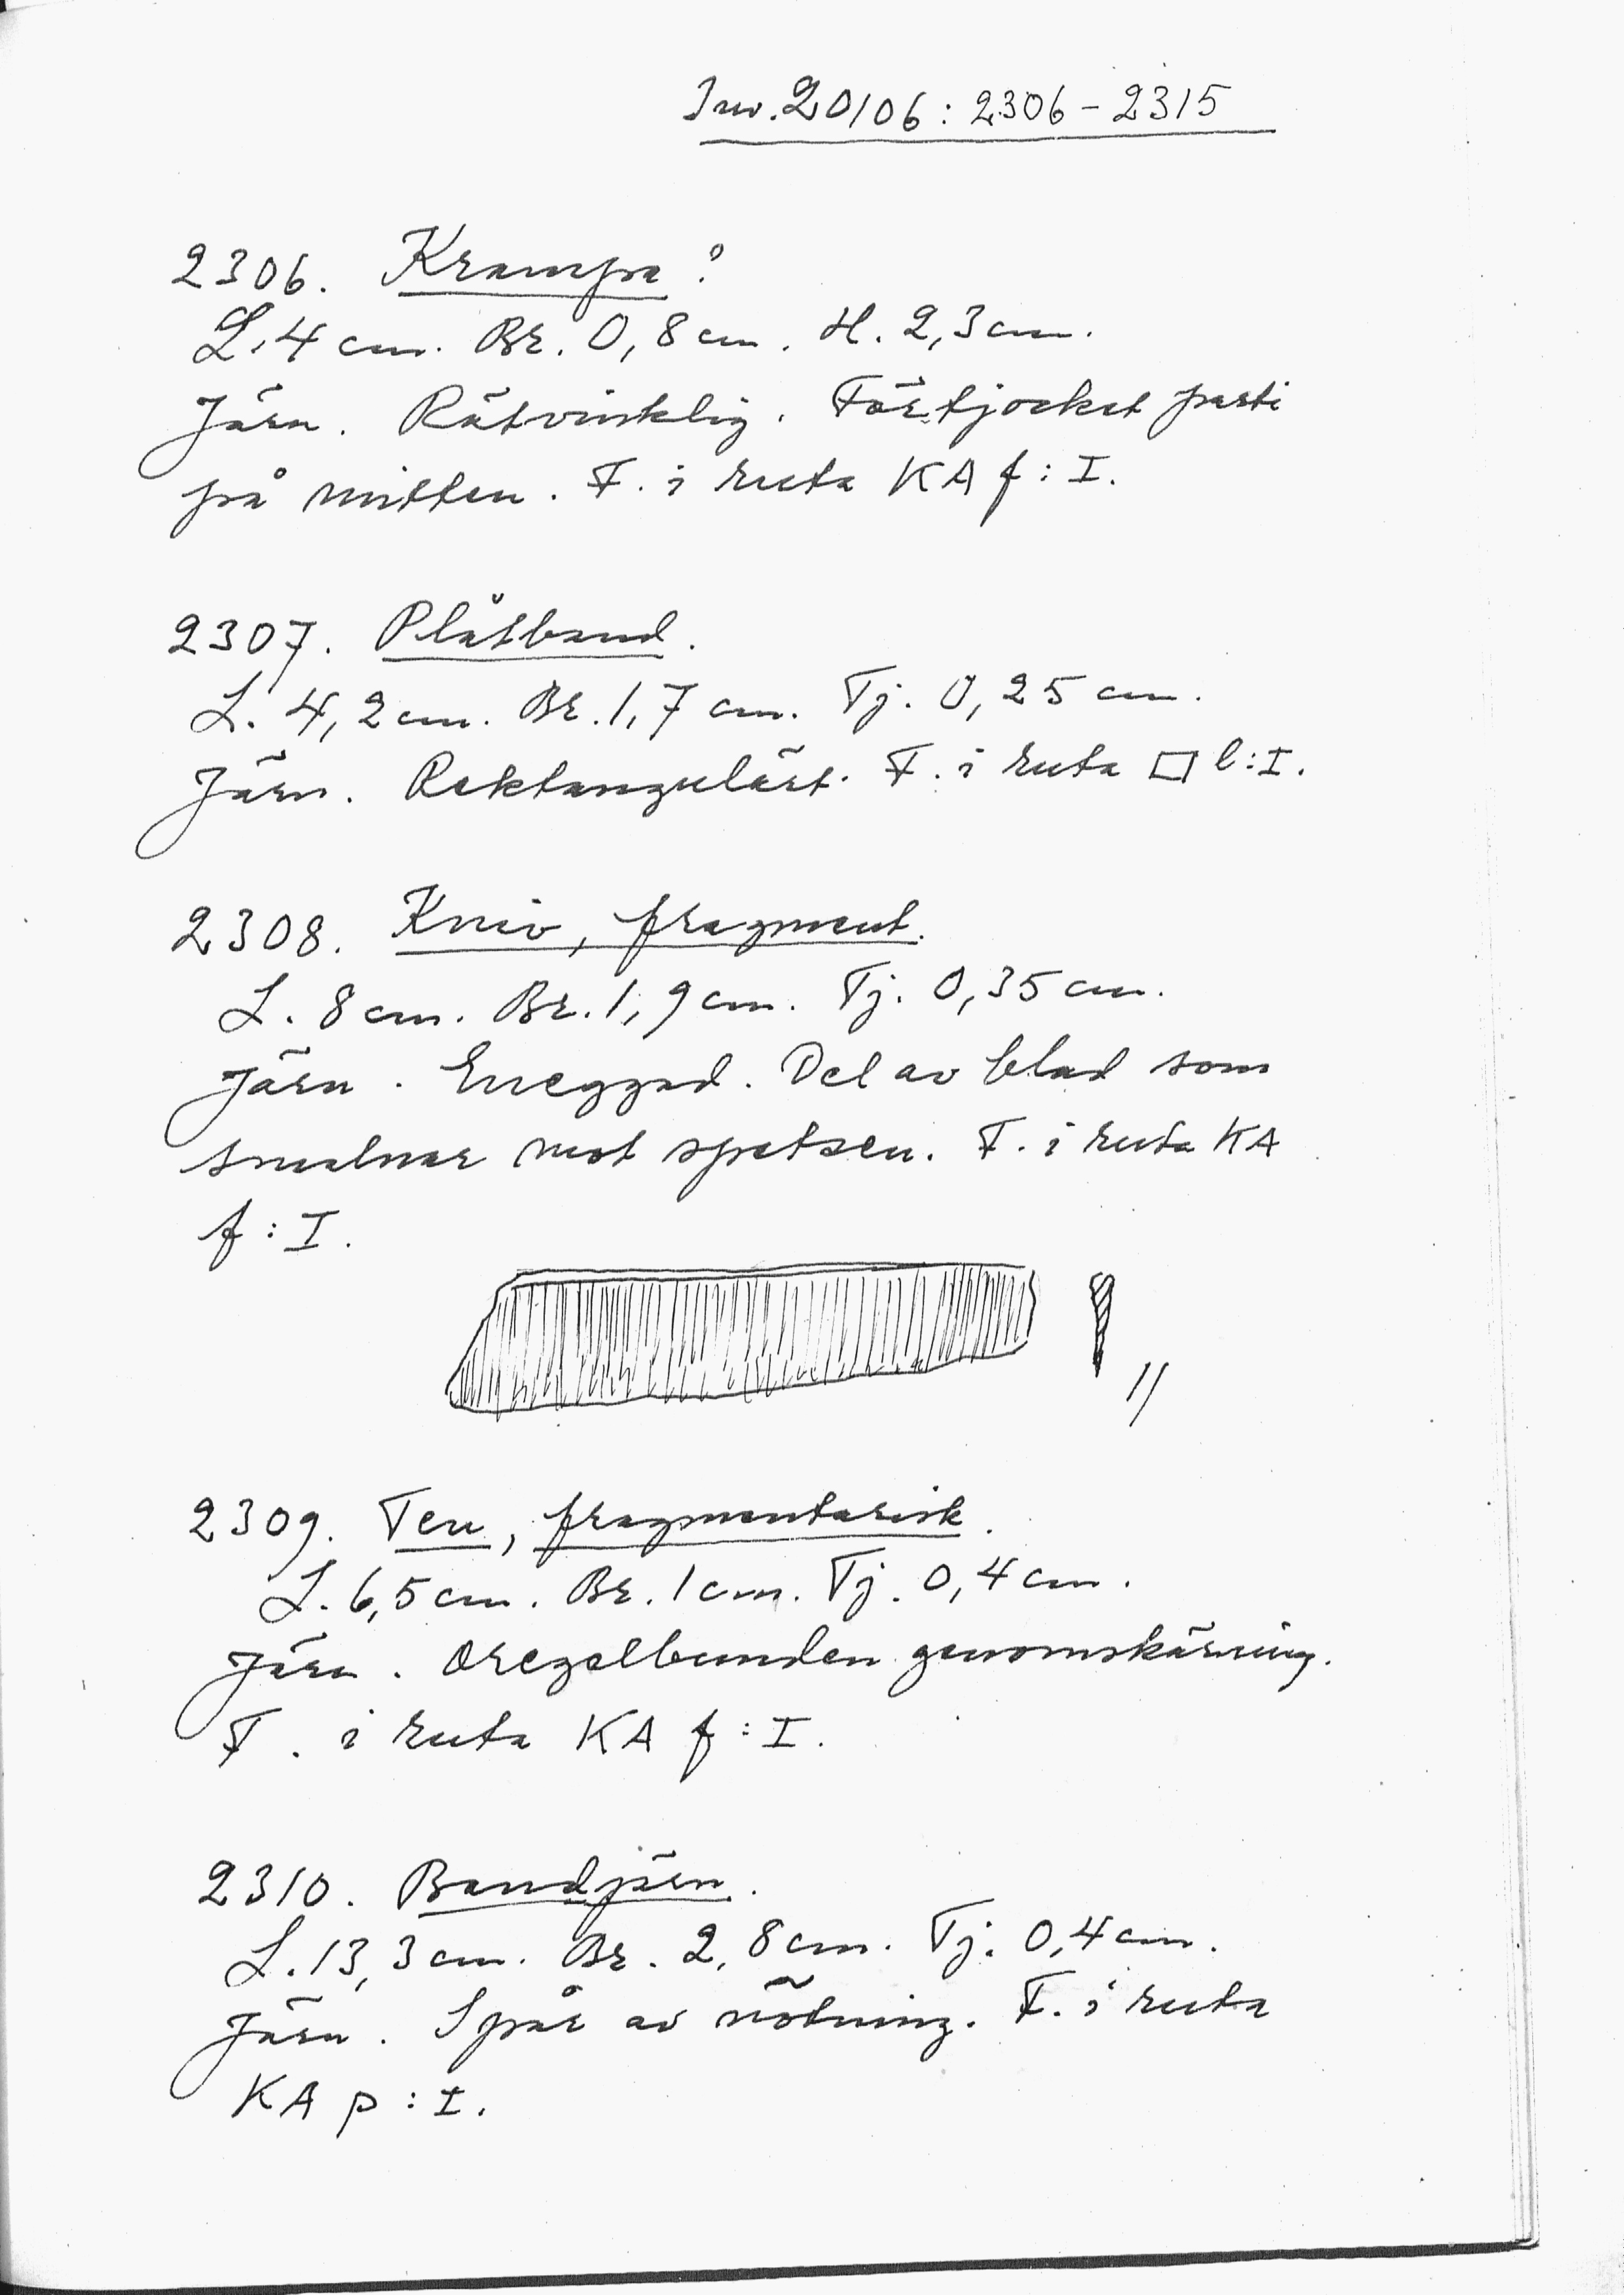 Inv. 20106: 2306-2315
2306. Krampa?
L. 4 cm. Br. 0,8 cm. H. 2,3 cm.
Järn. Rätvinklig. Förtjockat parti
på mitten. F. i ruta KA f: I.
2307. Plåtband.
L. 4,2 cm. Br. 1,7 cm. Tj. 0,25 cm.
Järn. Rektangulärt. F. i ruta □ l: I.
2308. Kniv, fragment.
L. 8 cm. Br. 1,9 cm. Tj. 0,35 cm.
Järn. Eneggad. Del av blad som
smalnar mot spetsen. F. i ruta KA
f: I.
1/1
2309. Ten, fragmentarisk.
L. 6,5 cm. Br. 1 cm. Tj. 0,4 cm.
Järn. Oregelbunden genomskärning.
F. i ruta KA f: I.
2310. Bandjärn.
L. 13,3 cm. Br. 2,8 cm. Tj. 0,4 cm.
Järn. Spår av nötning. F. i ruta
KA p: I.